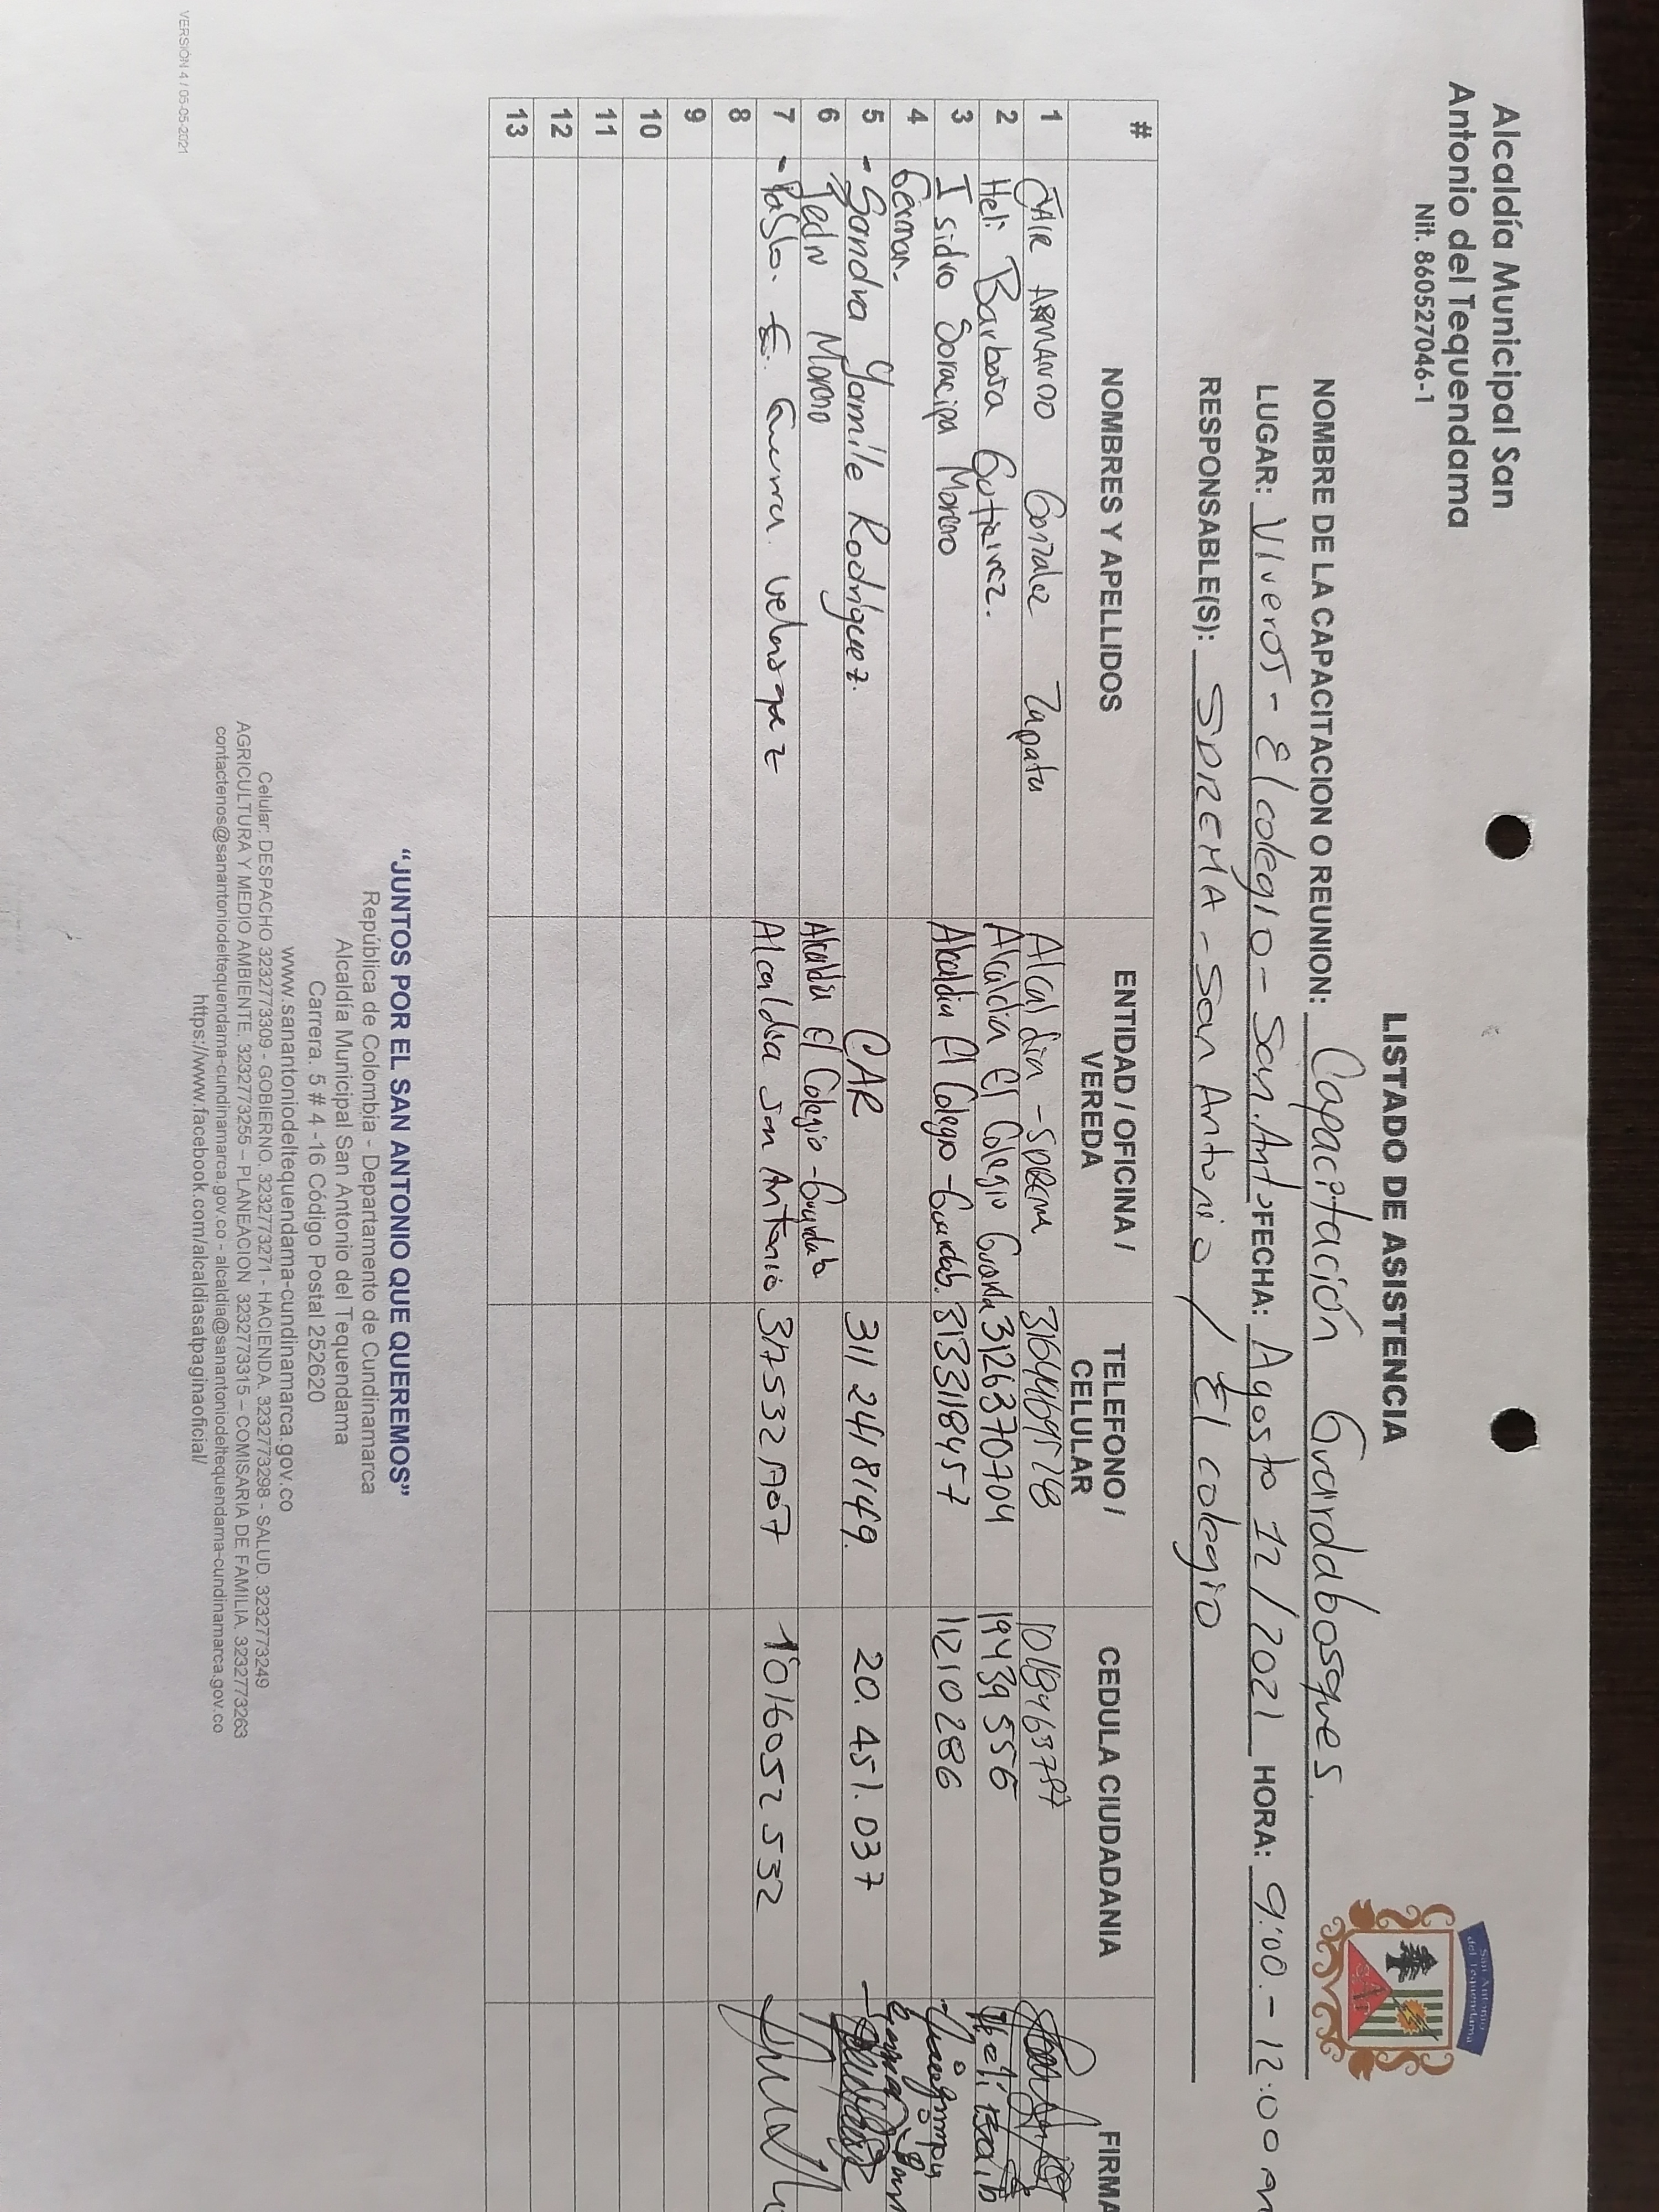 Alcaldía Municipal San
Antonio del Tequendama
Nit. 860527046-1
San Antonio
del Tequendama
LISTADO DE ASISTENCIA
NOMBRE DE LA CAPACITACION O REUNION: Capacitación Guardabosques.
LUGAR: Viveros - El colegio - San. Anto FECHA: Agosto 12/2021 HORA: 9:00.- 12:00 am
RESPONSABLE(S): SDREMA - San Antonio / El colegio
# NOMBRES Y APELLIDOS ENTIDAD / OFICINA / VEREDA TELEFONO / CELULAR CEDULA CIUDADANIA FIRMA
1 JAIR ARMANDO Gonzalez Zapata Alcaldia -
2 Heli Barbosa Gutierrez. Alcaldia El Colegio Guarda 3126370704 19439556
3 Isidro Soracipa Moreno Alcaldia El Colegio - Guardab. 3133118457 11210286
4 German.
5 - Sandra Yamile Rodríguez. CAR 311 2418149. 20.451.037
6 Pedro Moreno Alcaldia El Colegio - Guardab
7 - Pablo. E. Guerra. Velasquez Alcaldia San Antonio 1016052532
8
9
10
11
12
13
“JUNTOS POR EL SAN ANTONIO QUE QUEREMOS”
República de Colombia - Departamento de Cundinamarca
Alcaldía Municipal San Antonio del Tequendama
Carrera. 5 # 4 -16 Código Postal 252620
www.sanantoniodeltequendama-cundinamarca.gov.co
Celular: DESPACHO 3232773309 - GOBIERNO. 3232773271 - HACIENDA. 3232773298 - SALUD. 3232773249
AGRICULTURA Y MEDIO AMBIENTE. 3232773255 – PLANEACION. 3232773315 – COMISARIA DE FAMILIA. 3232773263
contactenos@sanantoniodeltequendama-cundinamarca.gov.co - alcaldia@sanantoniodeltequendama-cundinamarca.gov.co
https://www.facebook.com/alcaldiasatpaginaoficial/
VERSIÓN 4 / 05-05-2021